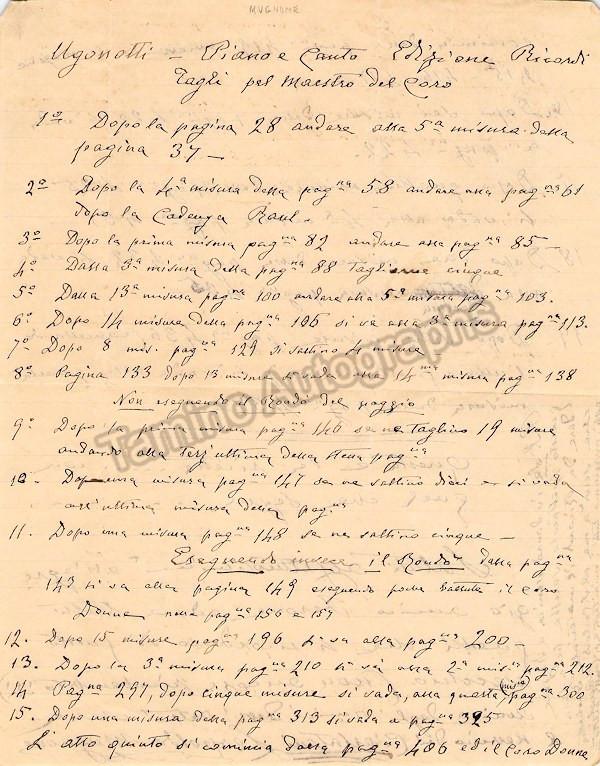 MUGNONE
Ugonotti — Piano e Canto Edizione Ricordi
Tagli pel Maestro del Coro
1º Dopo la pagina 28 andare alla 5ª misura della
pagina 37 —
2º Dopo la 4ª misura della pagⁿᵃ 58 andare alla pagⁿᵃ 61
dopo la Cadenza Raul.
3º Dopo la prima misura pagⁿᵃ 82 andare alla pagⁿᵃ 85 —
4º Dalla 3ª misura della pagⁿᵃ 88 tagliarne cinque
5º Dalla 13ª misura pagⁿᵃ 100 andare alla 5ª misura pagⁿᵃ 103.
6º Dopo 14 misure della pagⁿᵃ 106 si va alla 3ª misura pagⁿᵃ 113.
7º Dopo 8 mis. pagⁿᵃ 129 si saltino 4 misure
8º Pagina 133 dopo 13 misure si vada alla 14ᵐᵃ misura pagⁿᵃ 138
Non eseguendo il Rondò del paggio
9º Dopo la prima misura pagⁿᵃ 146 se ne taglino 19 misure
andando alla terz'ultima della stessa pagⁿᵃ
10. Dopo una misura pagⁿᵃ 147 se ne saltino dieci e si vada
all'ultima misura della pagⁿᵃ
11. Dopo una misura pagⁿᵃ 148 se ne saltino cinque —
Eseguendo invece il Rondò dalla pagⁿᵃ
143 si va alla pagina 149 eseguendo poche battute il coro
Donne nelle pagⁿᵃ 156 e 157
12. Dopo 15 misure pagⁿᵃ 196 si va alla pagⁿᵃ 200 —
13. Dopo la 3ª misura pagⁿᵃ 210 si va alla 2ª misª pagⁿᵃ 212.
14 Pagⁿᵃ 297, dopo cinque misure si vada, alla quarta (misª) pagⁿᵃ 300
15. Dopo una misura della pagⁿᵃ 313 si vada a pagⁿᵃ 395
L'atto quinto si comincia dalla pagⁿᵃ 406 ed il Coro Donne
Tamino Autographs